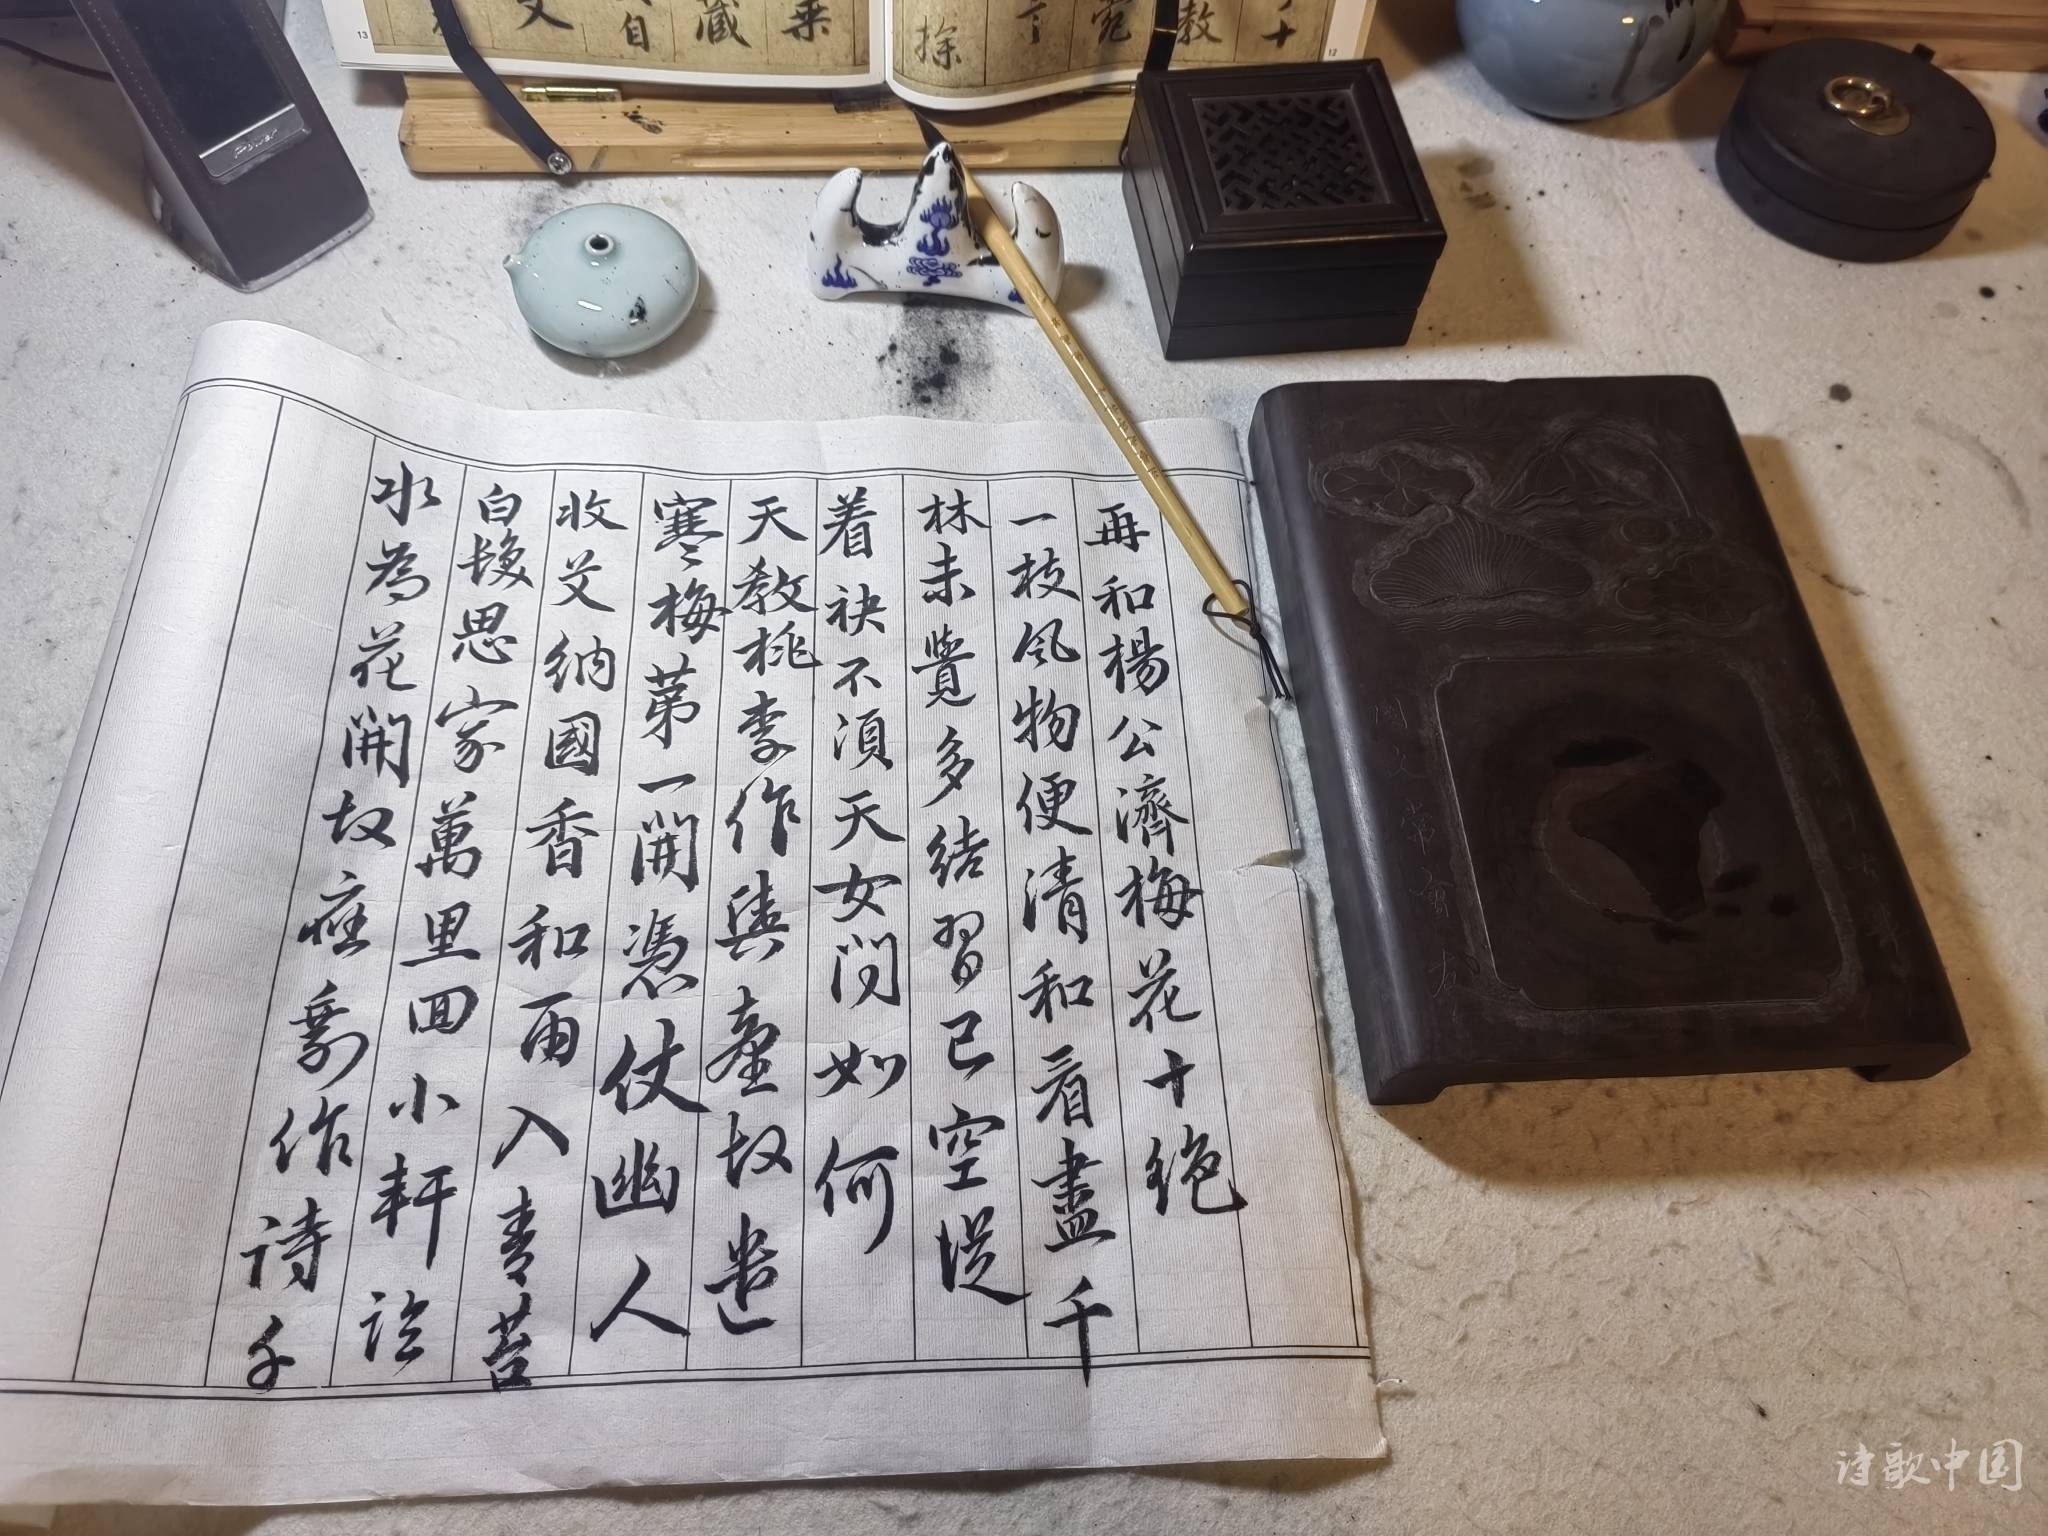 再和楊公濟梅花十絕
一枝風物便清和看盡千
林未覺多結習已空從
着袂不須天女問如何
天教桃李作輿臺故遣
寒梅第一開憑仗幽人
收艾納國香和雨入青苔
白髮思家萬里回小軒臨
水為花開故應剩作詩千
十
教
探
乘
藏
自
文
12
13
Power
诗歌中国